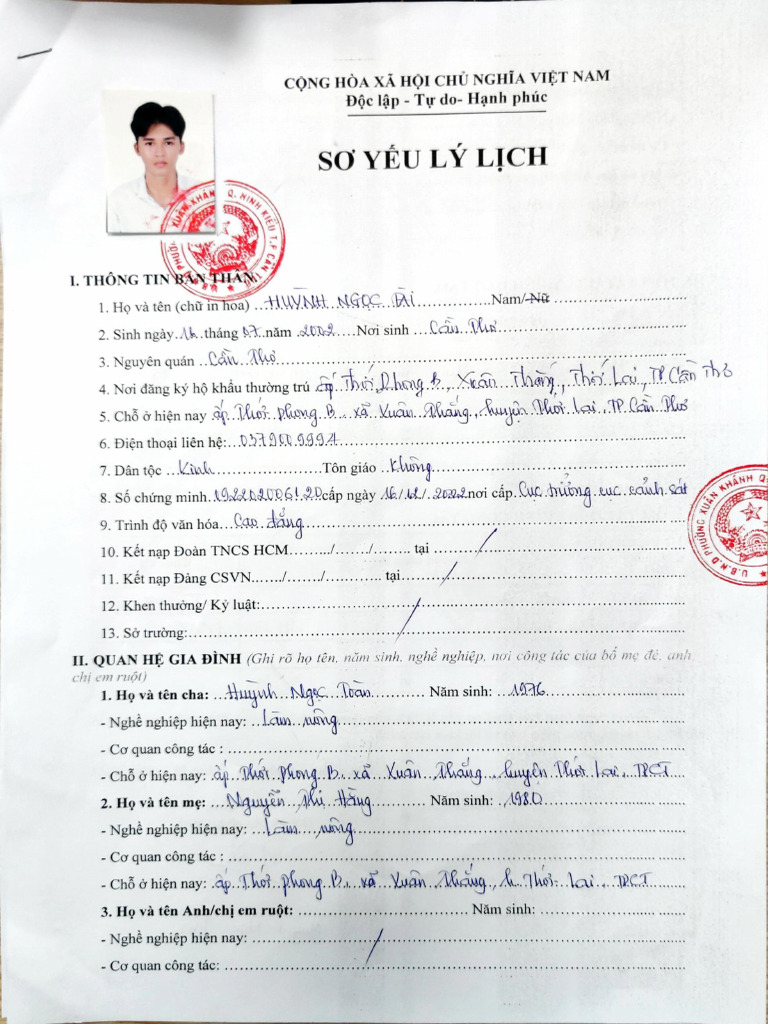 CỘNG HÒA XÃ HỘI CHỦ NGHĨA VIỆT NAM
Độc lập - Tự do- Hạnh phúc
SƠ YẾU LÝ LỊCH
XUÂN KHÁNH Q. NINH KIỀU T.P CẦN
I. THÔNG TIN BẢN THÂN
1. Họ và tên (chữ in hoa) HUỲNH NGỌC TÀI Nam/Nữ
2. Sinh ngày 16 tháng 07 năm 2002 Nơi sinh Cần Thơ
3. Nguyên quán Cần Thơ
4. Nơi đăng ký hộ khẩu thường trú ấp Thới Phong B, Xuân Thắng, Thới Lai, TP Cần Thơ
5. Chỗ ở hiện nay ấp Thới phong B, xã Xuân Thắng, huyện Thới Lai, TP. Cần Thơ
6. Điện thoại liên hệ:
7. Dân tộc Kinh Tôn giáo không
8. Số chứng minh cấp ngày 2022 nơi cấp Cục trưởng cục cảnh sát
9. Trình độ văn hóa Cao đẳng
10. Kết nạp Đoàn TNCS HCM......../......./........ tại
11. Kết nạp Đảng CSVN......./......./............... tại
12. Khen thưởng/ Kỷ luật:
13. Sở trường:
U.B.N.D PHƯỜNG XUÂN KHÁNH Q.
II. QUAN HỆ GIA ĐÌNH (Ghi rõ họ tên, năm sinh, nghề nghiệp, nơi công tác của bố mẹ đẻ, anh
chị em ruột)
1. Họ và tên cha: Huỳnh Ngọc Toàn Năm sinh: 1976
- Nghề nghiệp hiện nay: Làm nông
- Cơ quan công tác :
- Chỗ ở hiện nay: ấp Thới phong B, xã Xuân Thắng, huyện Thới Lai, TPCT
2. Họ và tên mẹ: Nguyễn Thị Hằng Năm sinh: 1980
- Nghề nghiệp hiện nay: Làm nông
- Cơ quan công tác :
- Chỗ ở hiện nay: ấp Thới phong B, xã Xuân Thắng, h. Thới Lai, TPCT
3. Họ và tên Anh/chị em ruột: Năm sinh:
- Nghề nghiệp hiện nay:
- Cơ quan công tác: